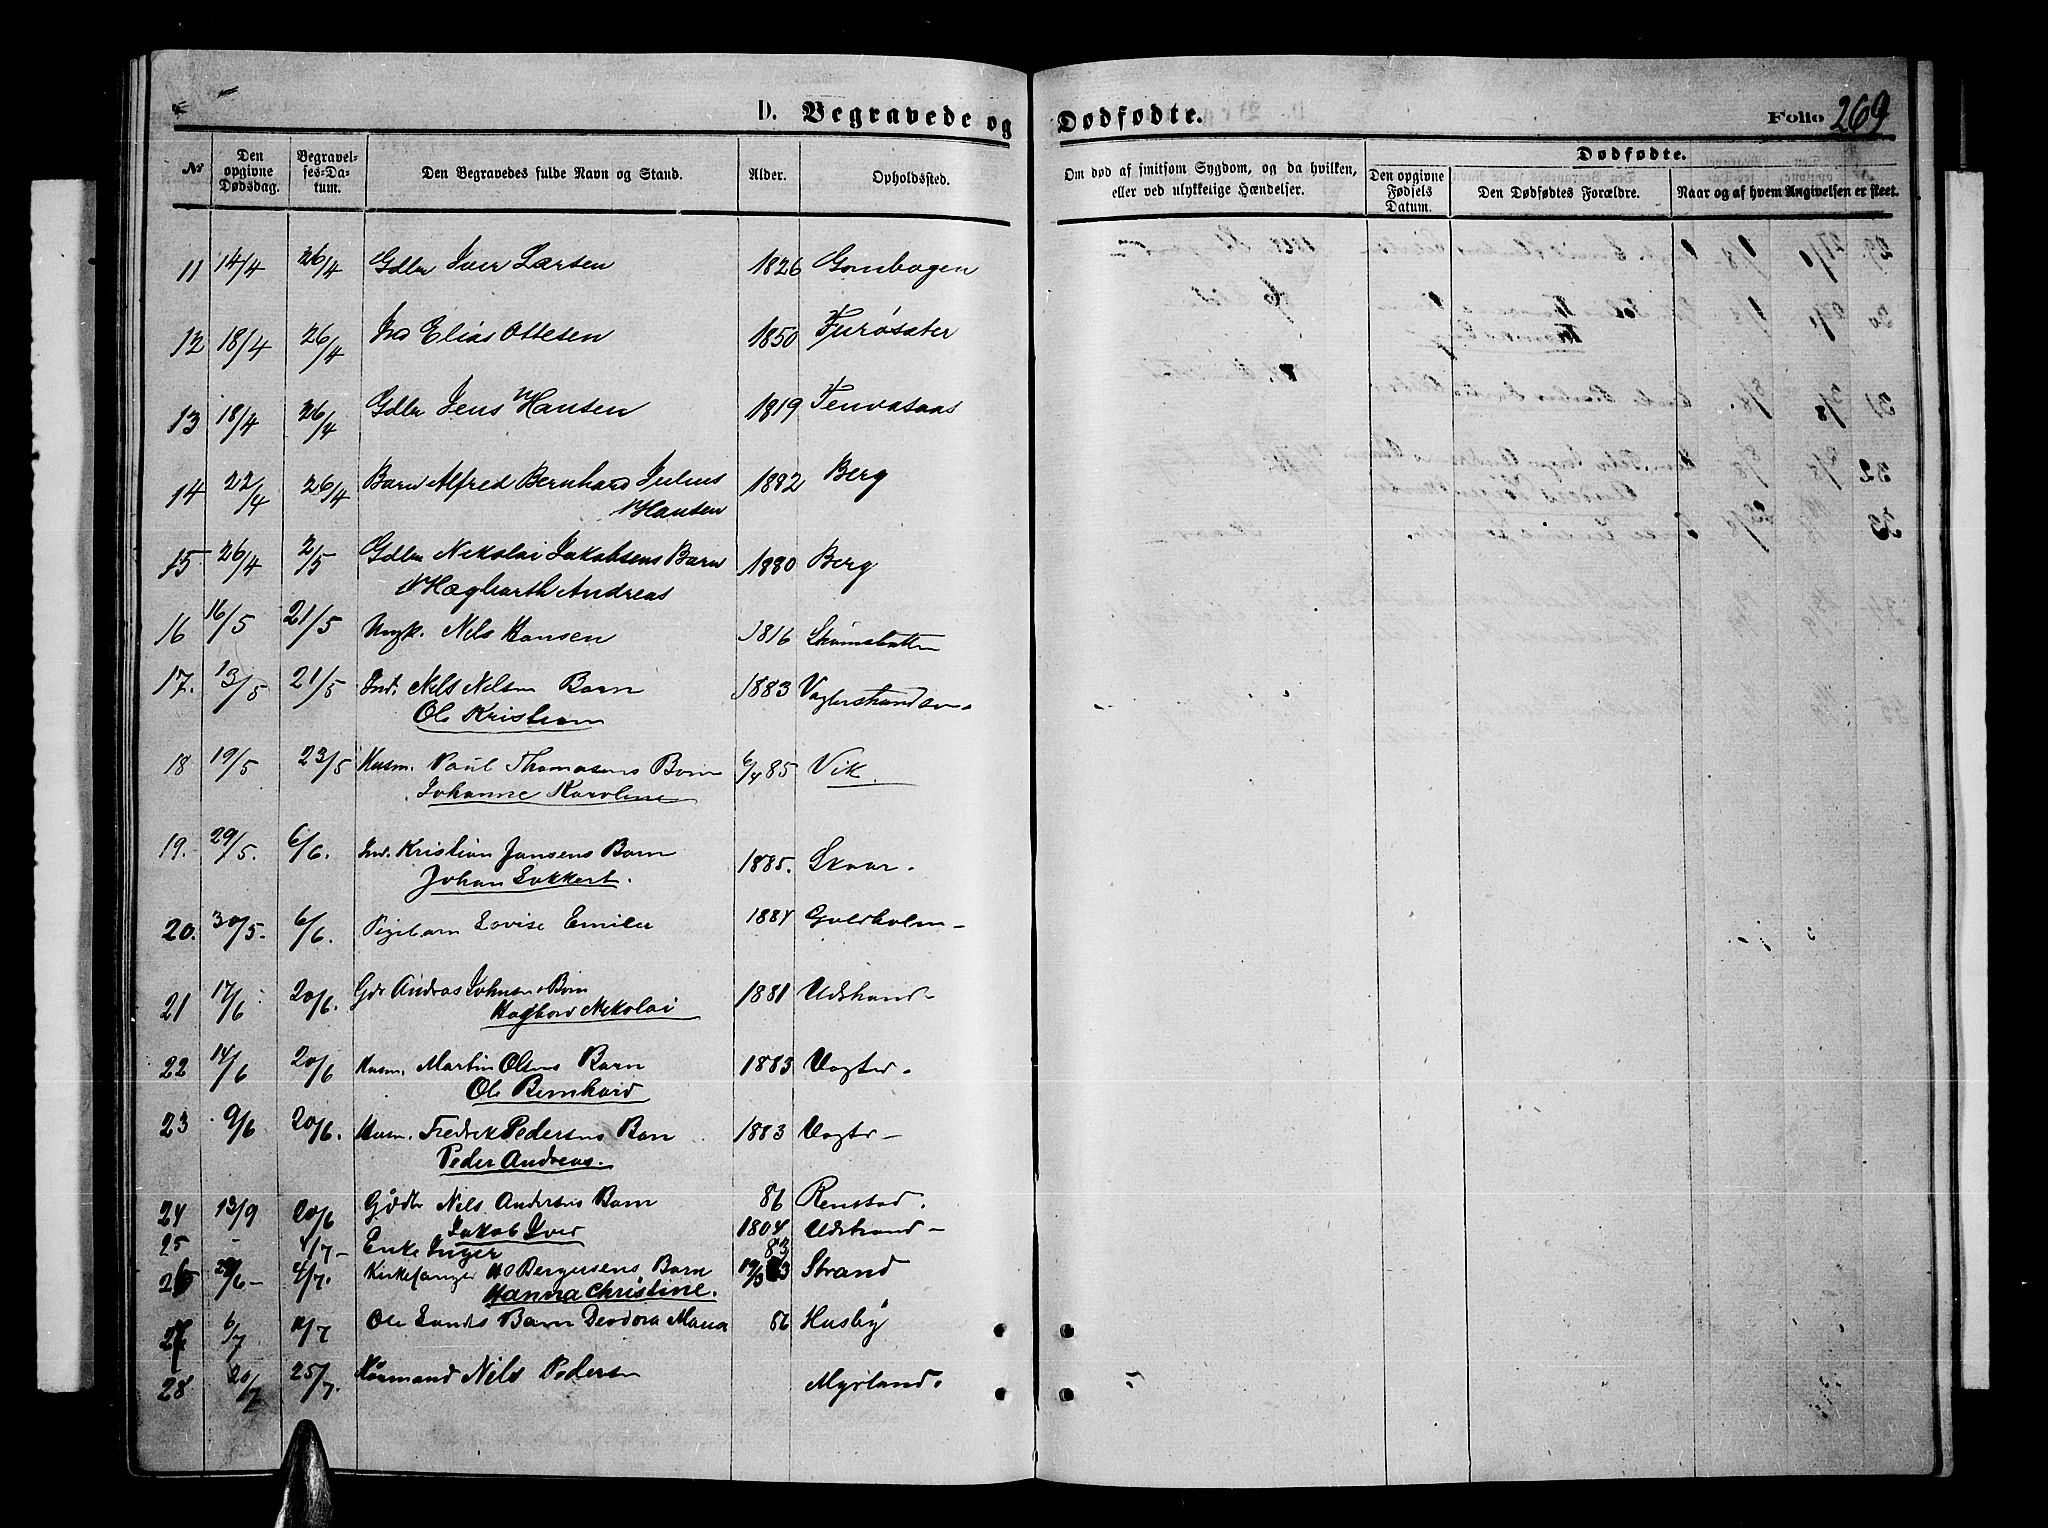 D. Begravede og Dødfødte. Folio 269
№ Den opgivne Dødsdag. Begravelses-Datum. Den Begravedes fulde Navn og Stand. Alder. Opholdssted. Om død af smitsom Sygdom, og da hvilken, eller ved ulykkelige Hændelser. Dødfødte. Den opgivne Fødsels Datum. Den Dødfødtes Forældre. Naar og af hvem Angivelsen er skeet.
11 14/4 26/4 Gdbr Iver Larsen 1826
12 18/4 26/4 Elias Ottesen 1850 Furøsæter
13 18/4 26/4 Gdbr Jens Hansen 1819
14 22/4 26/4 Barn Alfred Bernhard Julius 1882 Berg
Hansen
15 26/4 2/5 Gdbr Nikolai Jakobsens Barn 1880 Berg
Hagbarth Andreas
16 16/5 21/5 Ungk. Nels Hansen 1816
17. 13/5 21/5 Ind. Nels Nelsen Barn 1883
Ole Kristian
18 19/5 23/5 Husm. Paul Thomasens Barn 6/4 85 Vik.
Johanne Karoline
19. 29/5. 6/6. Ind. Kristian Jansens Barn 1885. Skaar.
Johan Lukkert.
20. 30/5. 6/6. Pigebarn Lovise Emilie 1884 Gulholm
21 17/6 20/6. Andreas Johnsens Barn 1881 Udstrand
Hagbard Nikolai
22 14/6 20/6 Husm. Martin Olsens Barn 1883
Ole Bernhard
23 9/6 20/6. Husm. Fredrik Pedersens Barn 1883
Peder Andreas.
24 13/9 20/6 Nels Andersens Barn 86 Renstad.
Jakob Iver
25 - 4/7 - Enke Inger 1804 Udstrand
26 /6 - 4/7. Kirkesanger Bergersens Barn 19/3 83 Strand
Hanna Christine.
27 6/7 11/7 Ole Barn Deodora Maria 86 Husby
28 20/7 25/7. Kårmand Nils Pedersen Myrland.